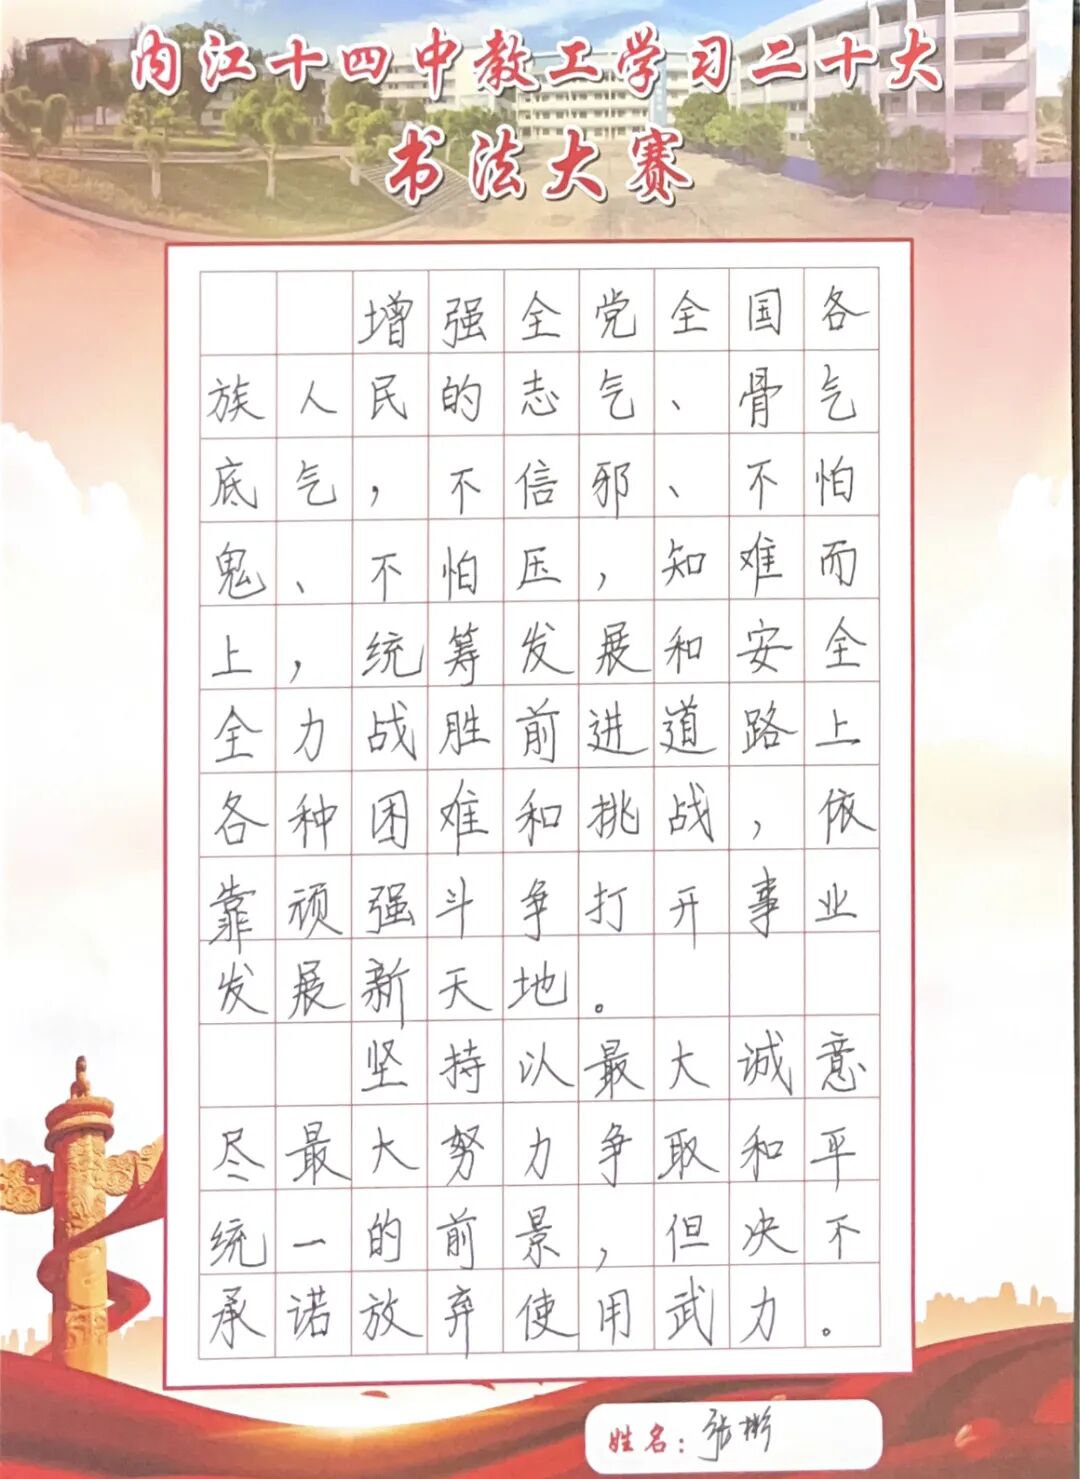 内江十四中教工学习二十大
书法大赛
增强全党全国各
族人民的志气、骨气
底气，不信邪、不怕
鬼、不怕压，知难而
上，统筹发展和安全
全力战胜前进道路上
各种困难和挑战，依
靠顽强斗争打开事业
发展新天地。
坚持以最大诚意
尽最大努力争取和平
统一的前景，但决不
承诺放弃使用武力。
姓名：张彬